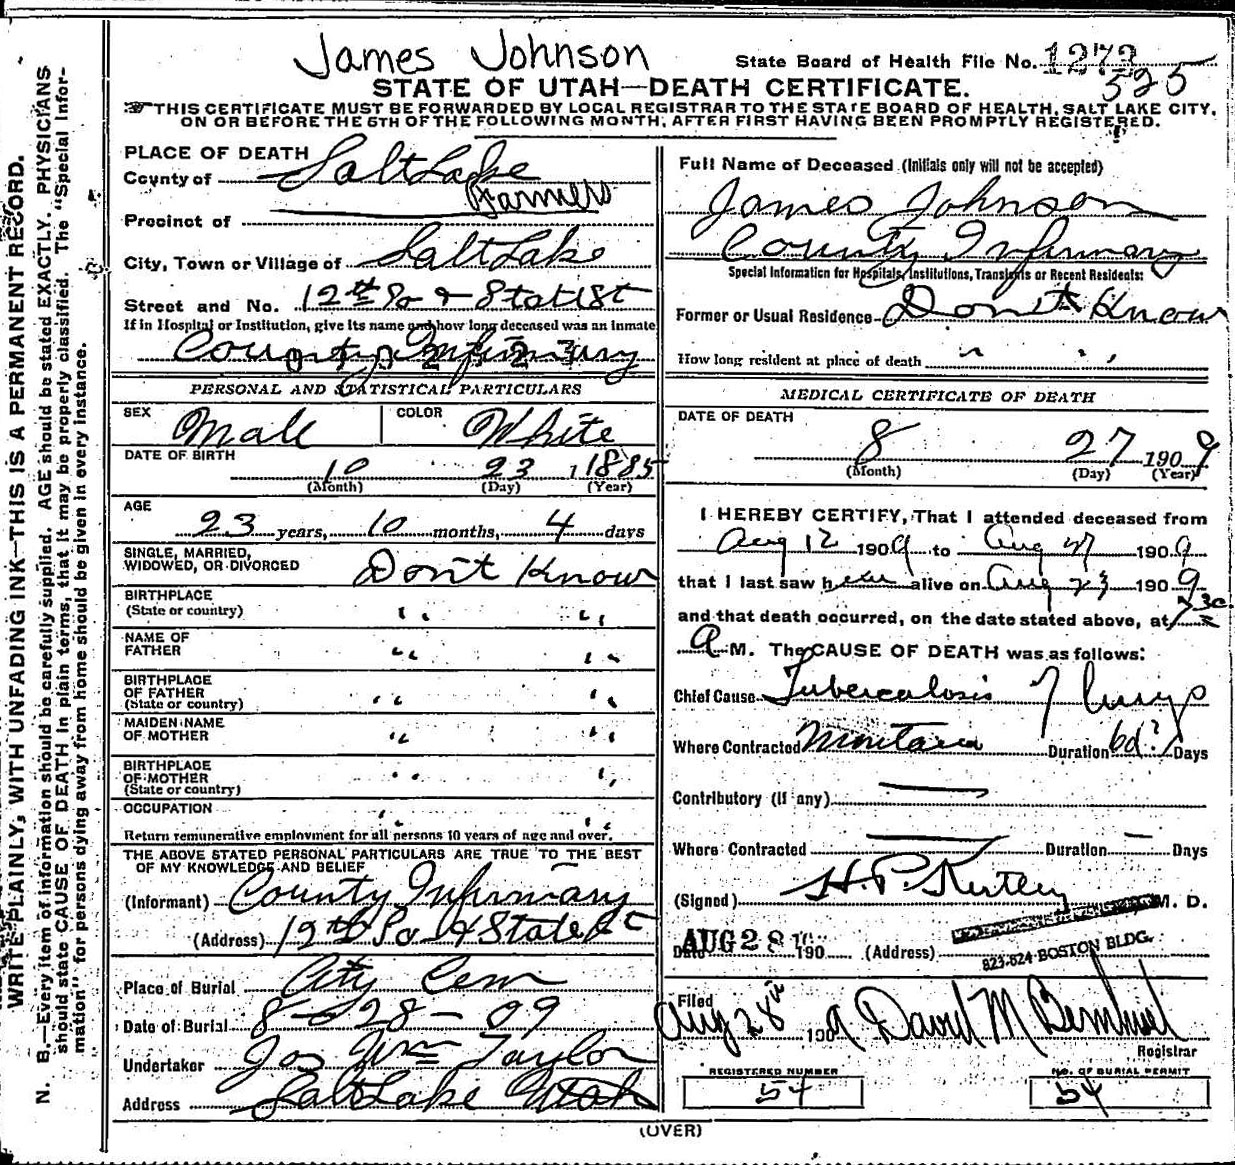 James Johnson
State Board of Health File No. 1273
525
STATE OF UTAH—DEATH CERTIFICATE.
THIS CERTIFICATE MUST BE FORWARDED BY LOCAL REGISTRAR TO THE STATE BOARD OF HEALTH, SALT LAKE CITY,
ON OR BEFORE THE 5TH OF THE FOLLOWING MONTH, AFTER FIRST HAVING BEEN PROMPTLY REGISTERED.
WRITE PLAINLY, WITH UNFADING INK—THIS IS A PERMANENT RECORD.
N. B.—Every item of information should be carefully supplied. AGE should be stated EXACTLY. PHYSICIANS
should state CAUSE OF DEATH in plain terms, that it may be properly classified. The "Special Infor-
mation" for persons dying away from home should be given in every instance.
PLACE OF DEATH
County of Salt Lake
Farmers
Precinct of
City, Town or Village of Salt Lake
Street and No. 12th So & State St
If in Hospital or Institution, give its name and how long deceased was an inmate
County Infirmary
PERSONAL AND STATISTICAL PARTICULARS
SEX Male COLOR White
DATE OF BIRTH
10 23 1885
(Month) (Day) (Year)
AGE
23 years, 10 months, 4 days
SINGLE, MARRIED,
WIDOWED, OR DIVORCED Don't Know
BIRTHPLACE
(State or country) " "
NAME OF
FATHER " "
BIRTHPLACE
OF FATHER
(State or country) " "
MAIDEN NAME
OF MOTHER " "
BIRTHPLACE
OF MOTHER
(State or country) " "
OCCUPATION " "
Return remunerative employment for all persons 10 years of age and over.
THE ABOVE STATED PERSONAL PARTICULARS ARE TRUE TO THE BEST
OF MY KNOWLEDGE AND BELIEF
(Informant) County Infirmary
(Address) 12th So & State St
Place of Burial City Cem
Date of Burial 8-28-09
Undertaker Jos Wm Taylor
Address Salt Lake Utah
Full Name of Deceased (Initials only will not be accepted)
James Johnson
County Infirmary
Special Information for Hospitals, Institutions, Transients or Recent Residents:
Former or Usual Residence Don't Know
How long resident at place of death " "
MEDICAL CERTIFICATE OF DEATH
DATE OF DEATH
8 27 1909
(Month) (Day) (Year)
I HEREBY CERTIFY, That I attended deceased from
Aug 12 1909 to Aug 27 1909
that I last saw him alive on Aug 23 1909
and that death occurred, on the date stated above, at 7 30
A M. The CAUSE OF DEATH was as follows:
Chief Cause Tuberculosis of lungs
Where Contracted Montana Duration 6d? Days
Contributory (if any)
Where Contracted Duration Days
(Signed) H. P. Kirtley M. D.
Date AUG 28 190 (Address) 823-824 BOSTON BLDG.
Filed
Aug 28th 1909 David M
Registrar
REGISTERED NUMBER
54
NO. OF BURIAL PERMIT
54
(OVER)